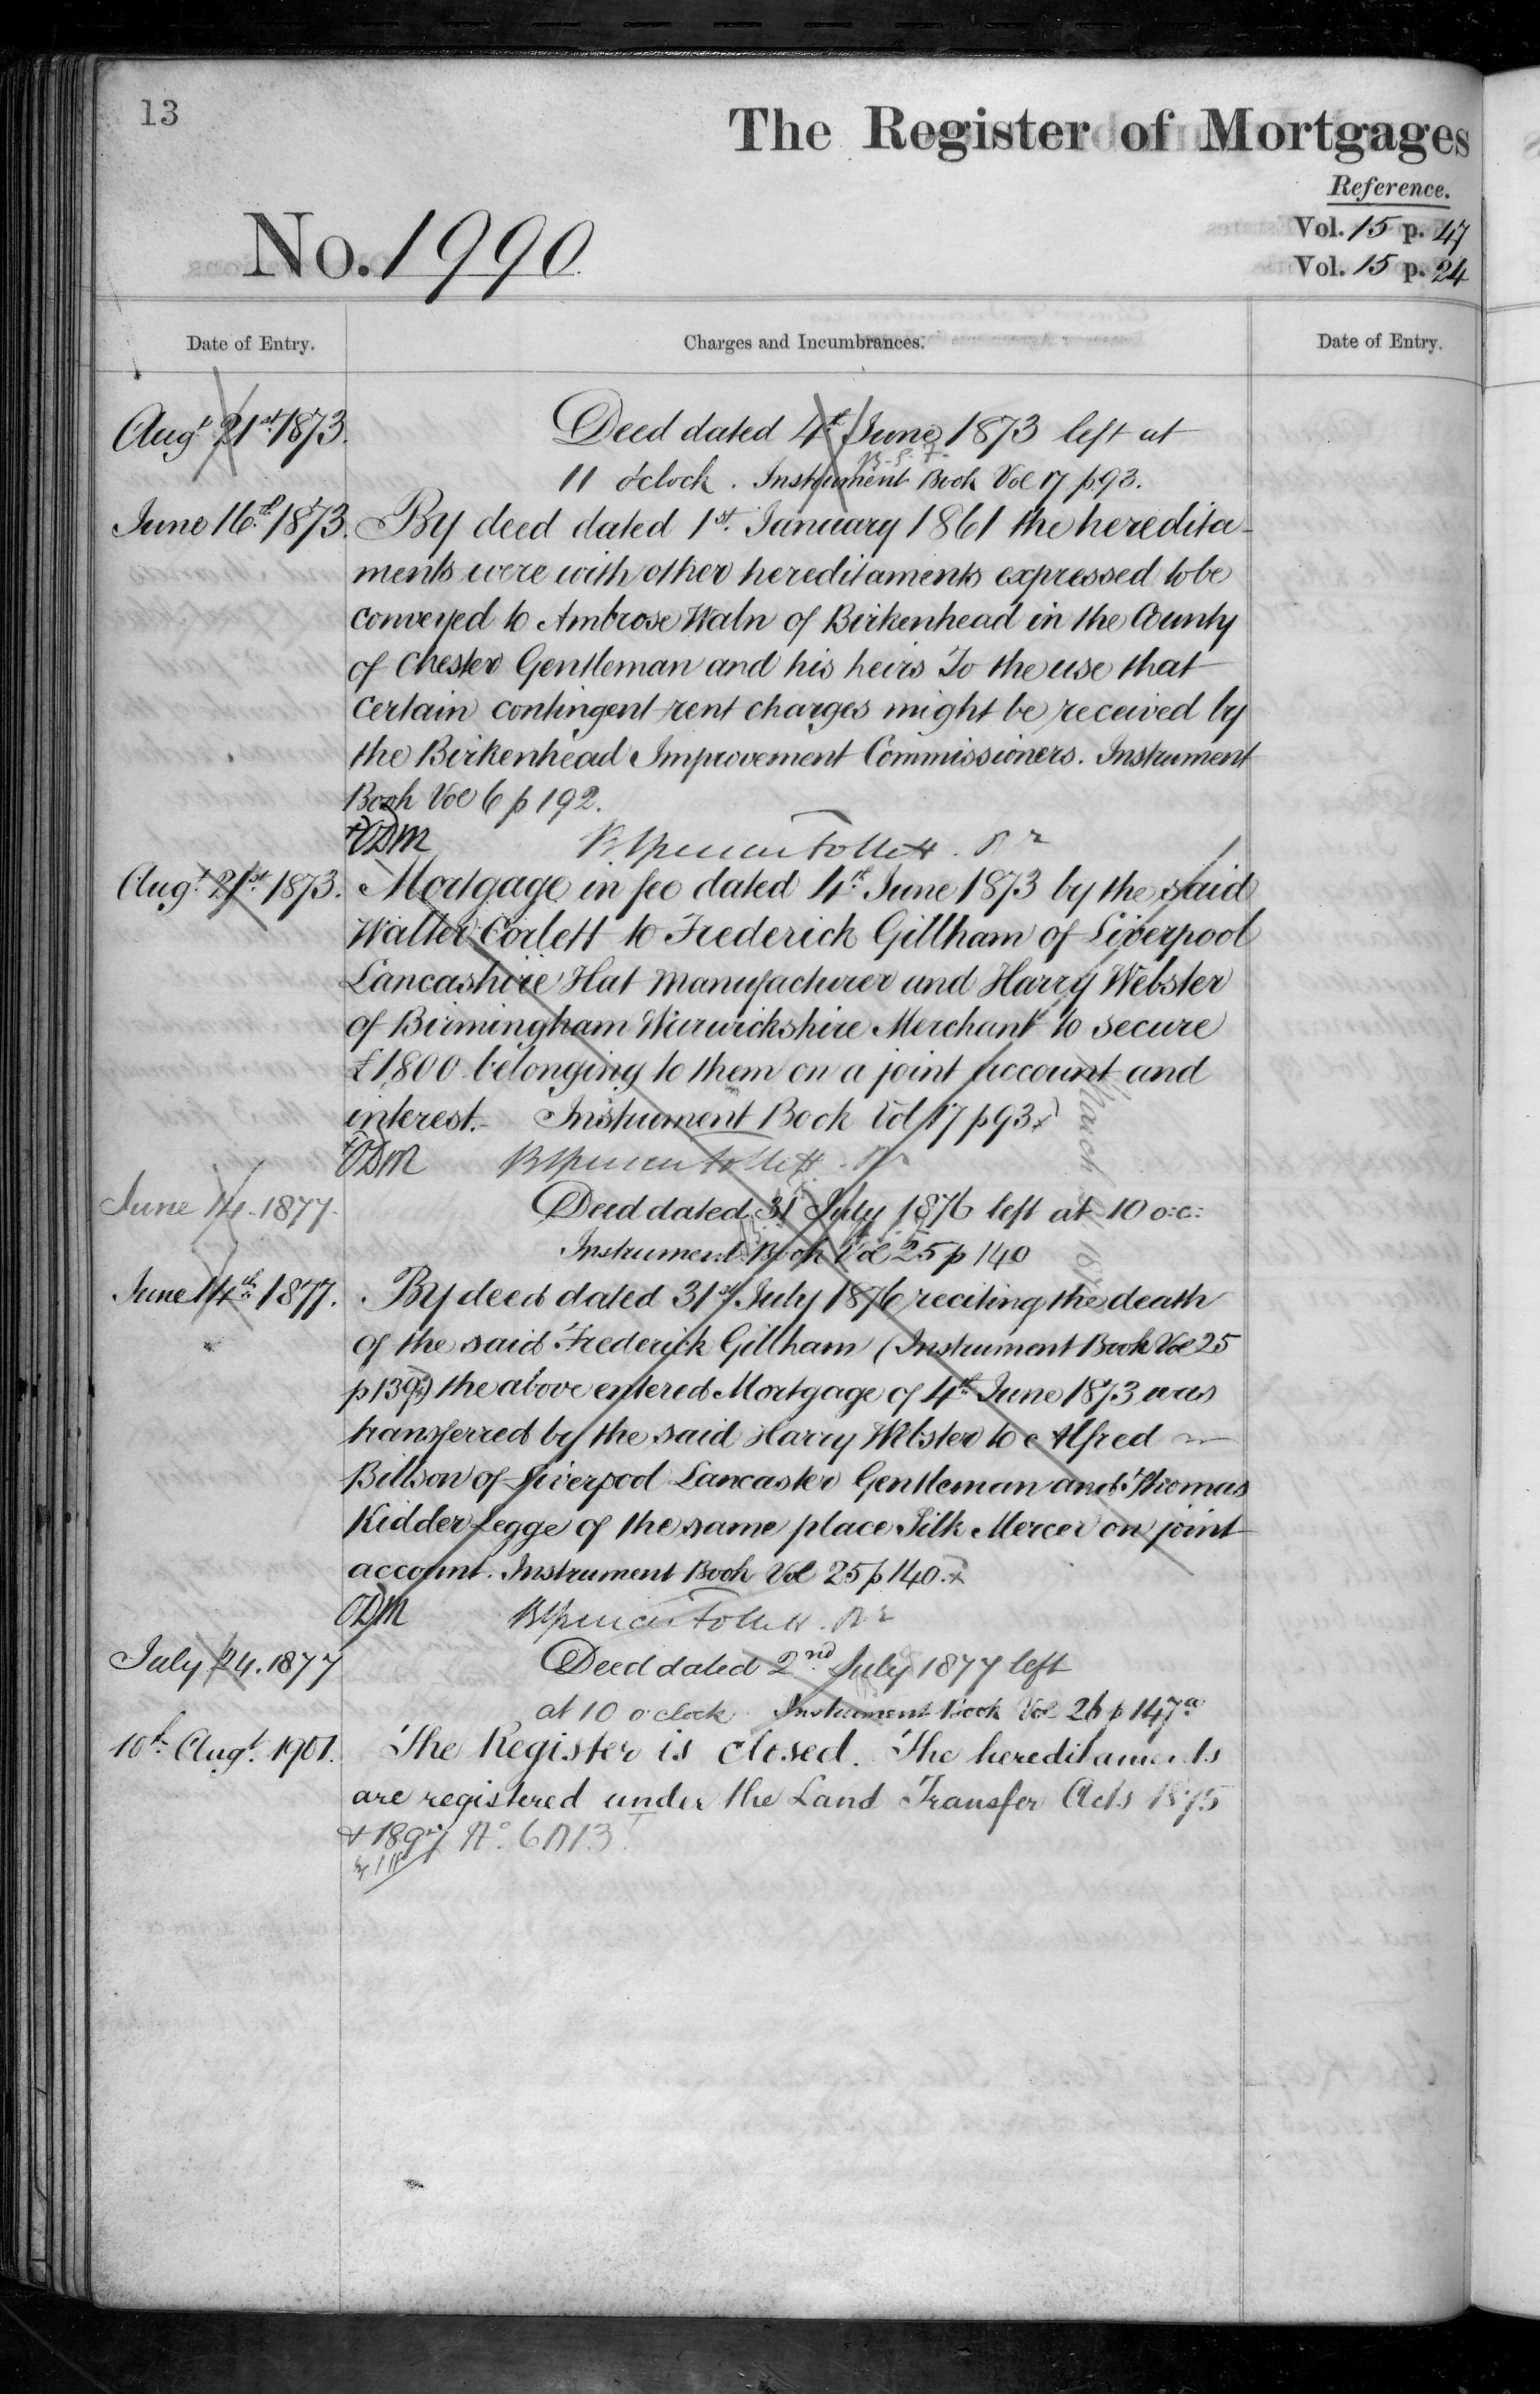 13
The Register of Mortgages
Reference.
Vol. 15 p. 47
No. 1990
Vol. 15 p. 24
Date of Entry. Charges and Incumbrances. Date of Entry.
Augt 21st 1873. Deed dated 4th June 1873 left at
11 o'clock. Instrument Book Vol 17 p 93.
June 16th 1873. By deed dated 1st January 1861 the heredita-
ments were with other hereditaments expressed to be
conveyed to Ambrose Waln of Birkenhead in the County
of Chester Gentleman and his heirs To the use that
certain contingent rent charges might be received by
the Birkenhead Improvement Commissioners. Instrument
Book Vol 6 p 192.
ODM B Spencer Follett. Rr
Augt 21st 1873. Mortgage in fee dated 4th June 1873 by the said
Walter Corlett to Frederick Gillham of Liverpool
Lancashire Hat Manufacturer and Harry Webster
of Birmingham Warwickshire Merchant to secure
£1800 belonging to them on a joint account and
interest. Instrument Book Vol 17 p 93.
ODM B Spencer Follett. Rr
June 14. 1877. Deed dated 31 July 1876 left at 10 o.c.
Instrument Book Vol 25 p 140
June 14th 1877. By deed dated 31st July 1876 reciting the death
of the said Frederick Gillham (Instrument Book Vol 25
p 139) the above entered Mortgage of 4th June 1873 was
transferred by the said Harry Webster to Alfred
Billson of Liverpool Lancaster Gentleman and Thomas
Kidder Legge of the same place Silk Mercer on joint
account. Instrument Book Vol 25 p 140.
ODM B Spencer Follett. Rr
July 24. 1877 Deed dated 2nd July 1877 left
at 10 o'clock Instrument Book Vol 26 p 147a
10th Augt. 1901. The Register is closed. The hereditaments
are registered under the Land Transfer Acts 1875
& 1897 No.